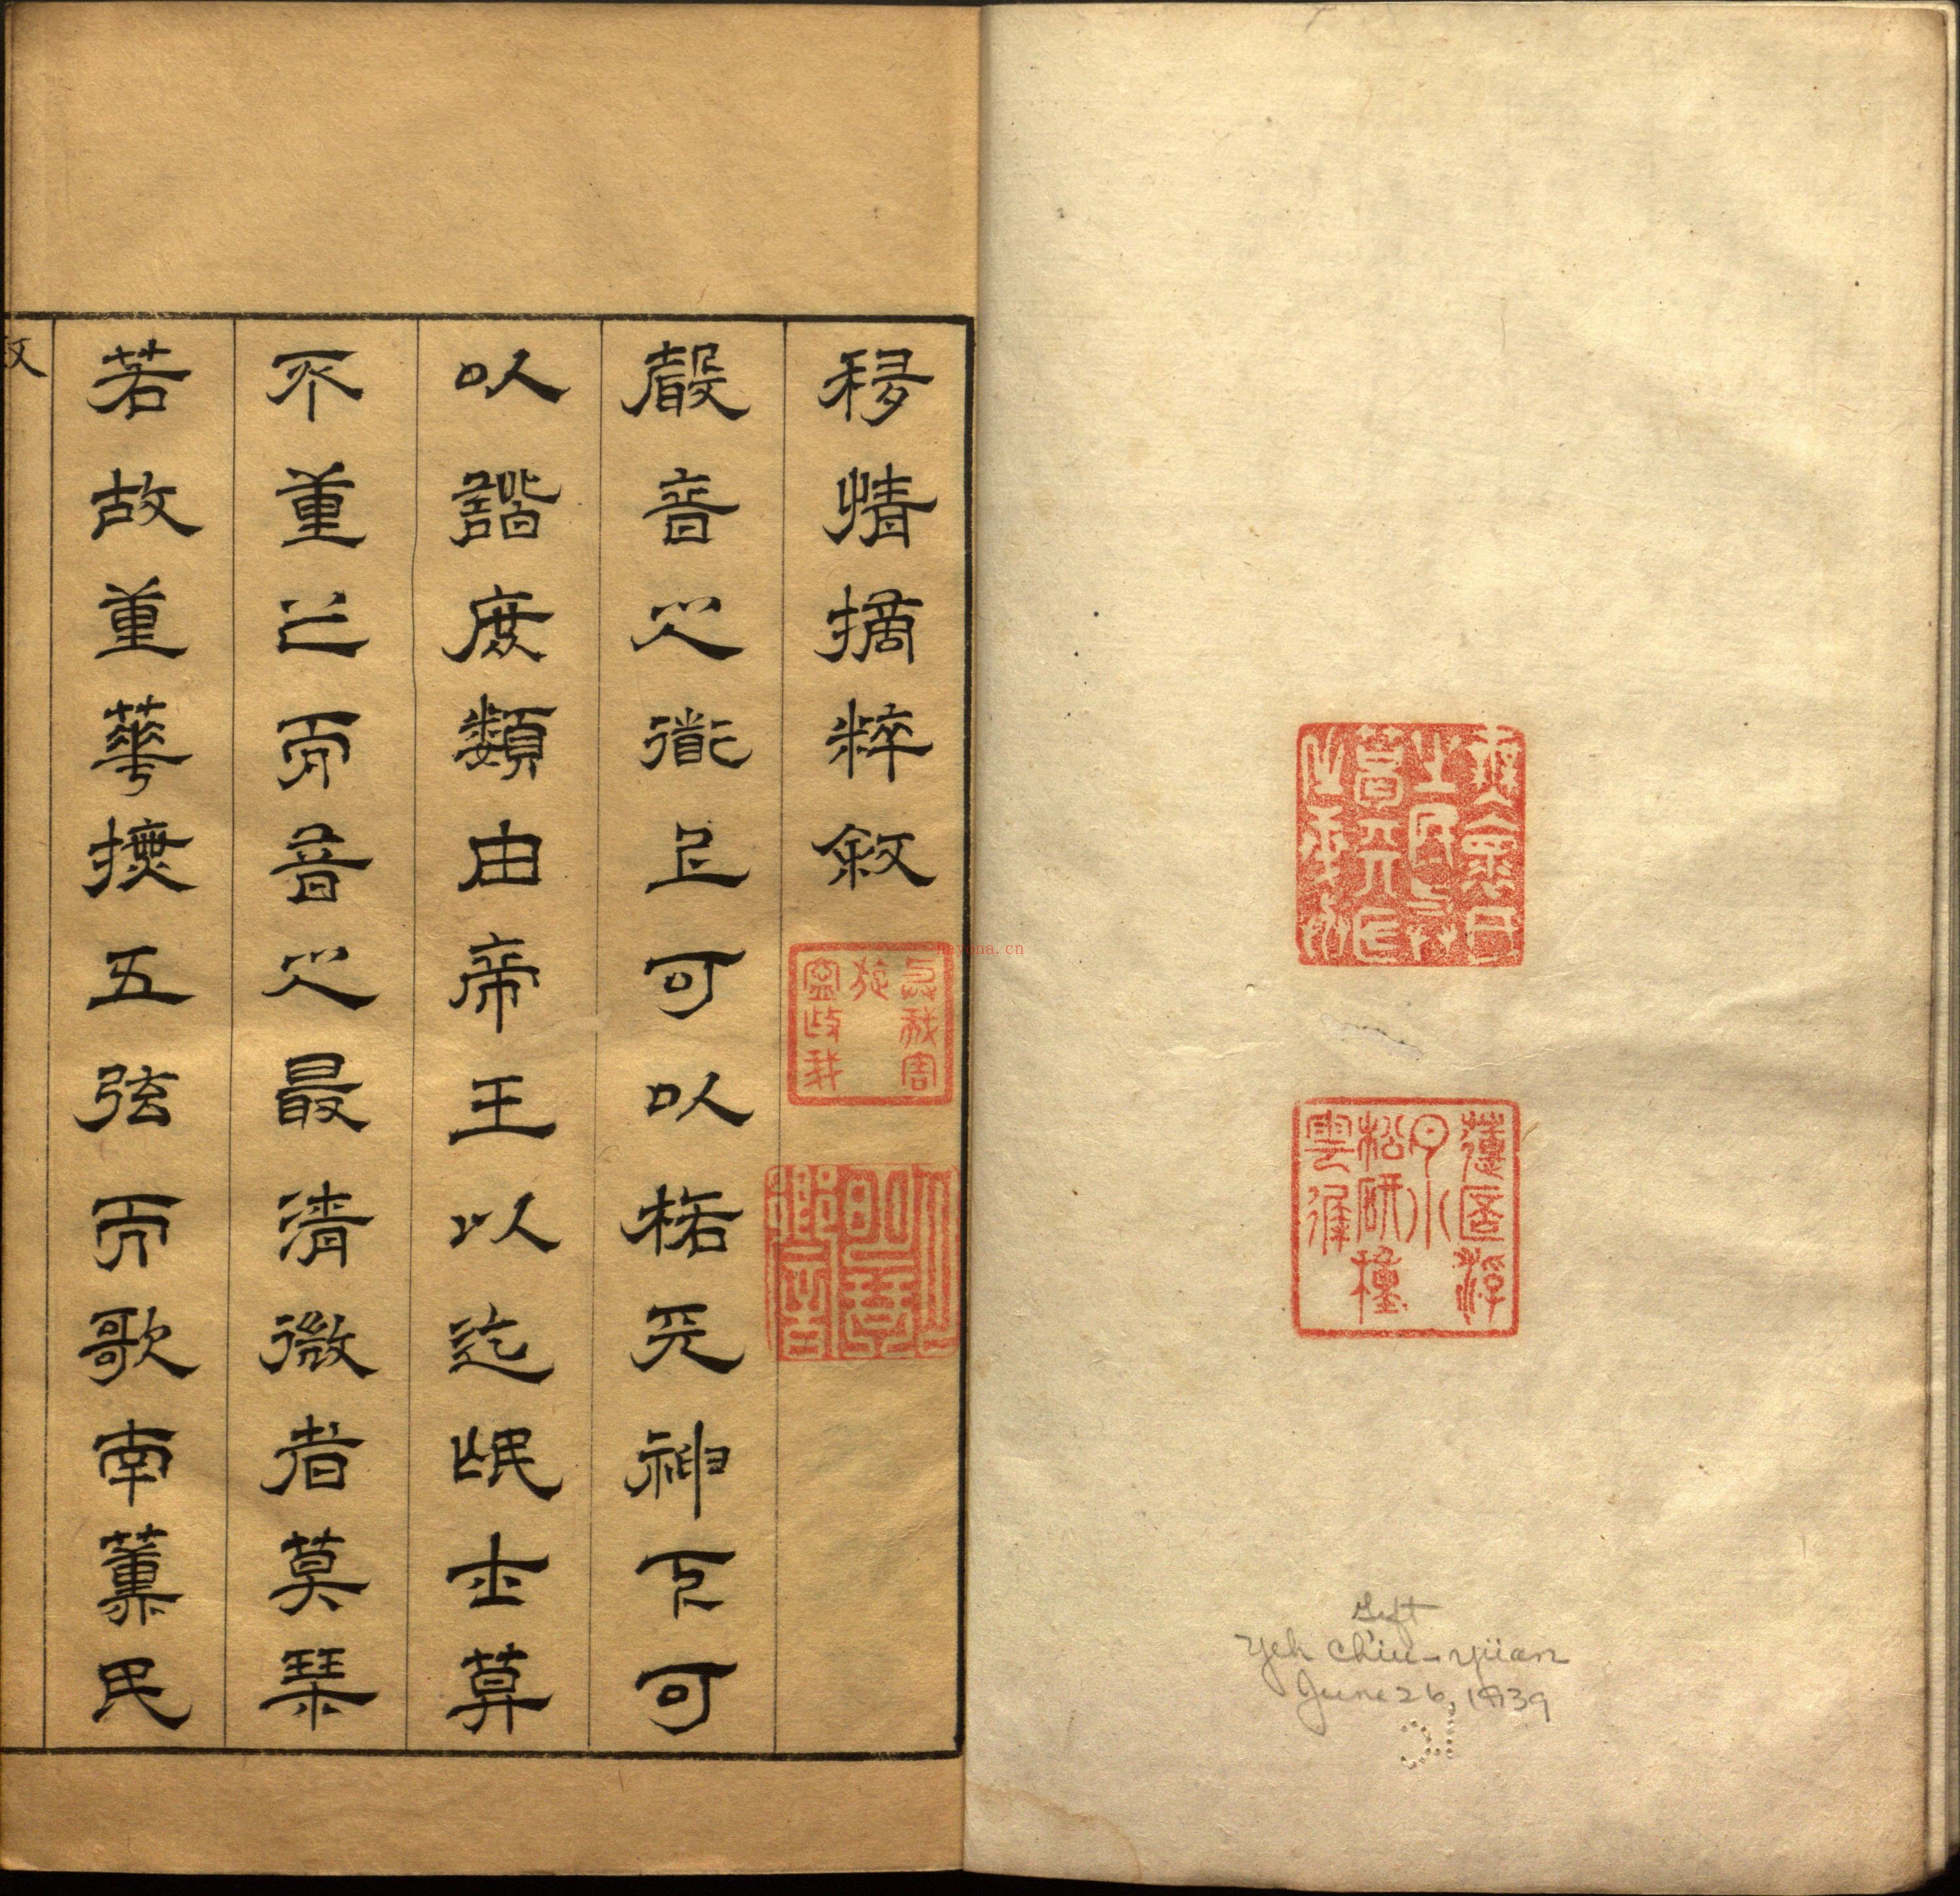 Gift
Yeh Ch'iu-yüan
June 26, 1939
移情摘粹敘
聲音之道上可以格天神下可
以諧庶類由帝王以迄氓士莫
不重之而音之最清微者莫琴
若故重華撫五弦而歌南薰民